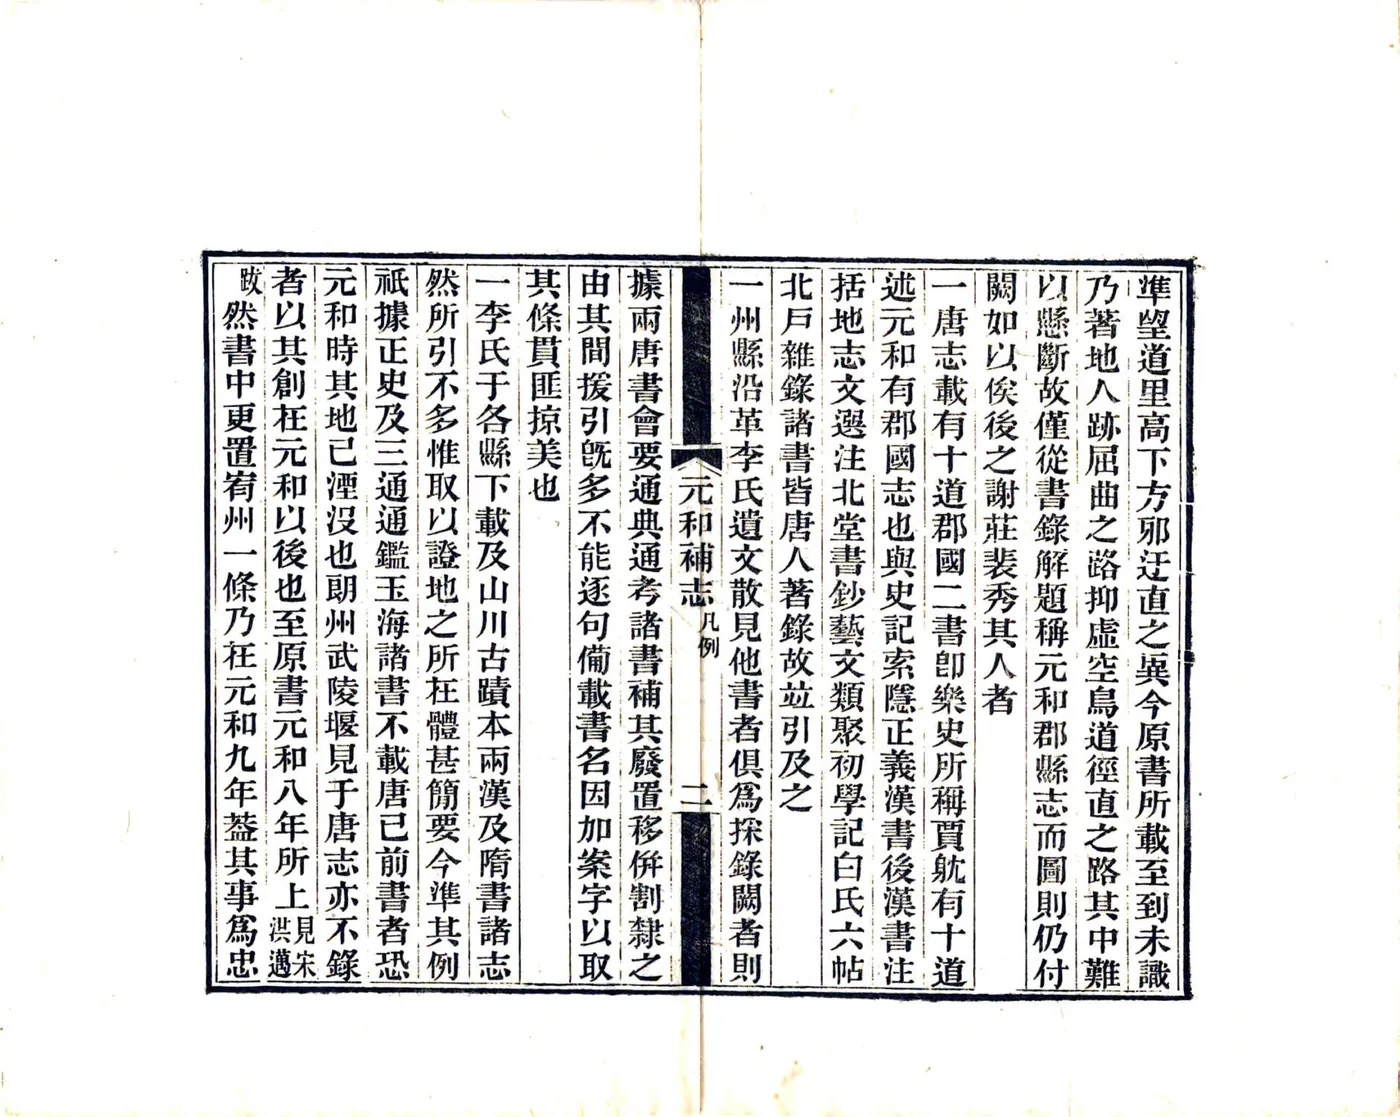 準望道里高下方邪迂直之異今原書所載至到未識
乃著地人跡屈曲之路抑虛空鳥道徑直之路其中難
以懸斷故僅從書錄解題稱元和郡縣志而圖則仍付
闕如以俟後之謝莊裴秀其人者
一唐志載有十道郡國二書卽樂史所稱賈躭有十道
述元和有郡國志也與史記索隱正義漢書後漢書注
括地志文選注北堂書鈔藝文類聚初學記白氏六帖
北戶雜錄諸書皆唐人著錄故竝引及之
一州縣沿革李氏遺文散見他書者俱爲採錄闕者則
元和補志 凡例 二
據兩唐書會要通典通考諸書補其廢置移併割隸之
由其間援引旣多不能逐句備載書名因加案字以取
其條貫匪掠美也
一李氏于各縣下載及山川古蹟本兩漢及隋書諸志
然所引不多惟取以證地之所在體甚簡要今準其例
祇據正史及三通通鑑玉海諸書不載唐已前書者恐
元和時其地已湮沒也朗州武陵堰見于唐志亦不錄
者以其創在元和以後也至原書元和八年所上見宋洪邁
跋然書中更置宥州一條乃在元和九年葢其事爲忠